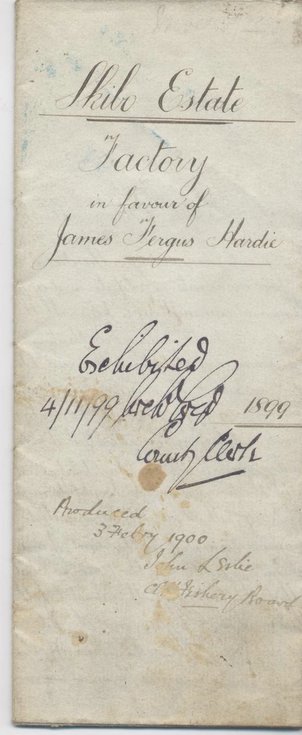 Skibo Estate
Factory
in favour of
James Fergus Hardie
Exhibited
4/11/99
1899
County Clerk
Produced
3 Febry 1900.
John Leslie
Clk Fishery Board